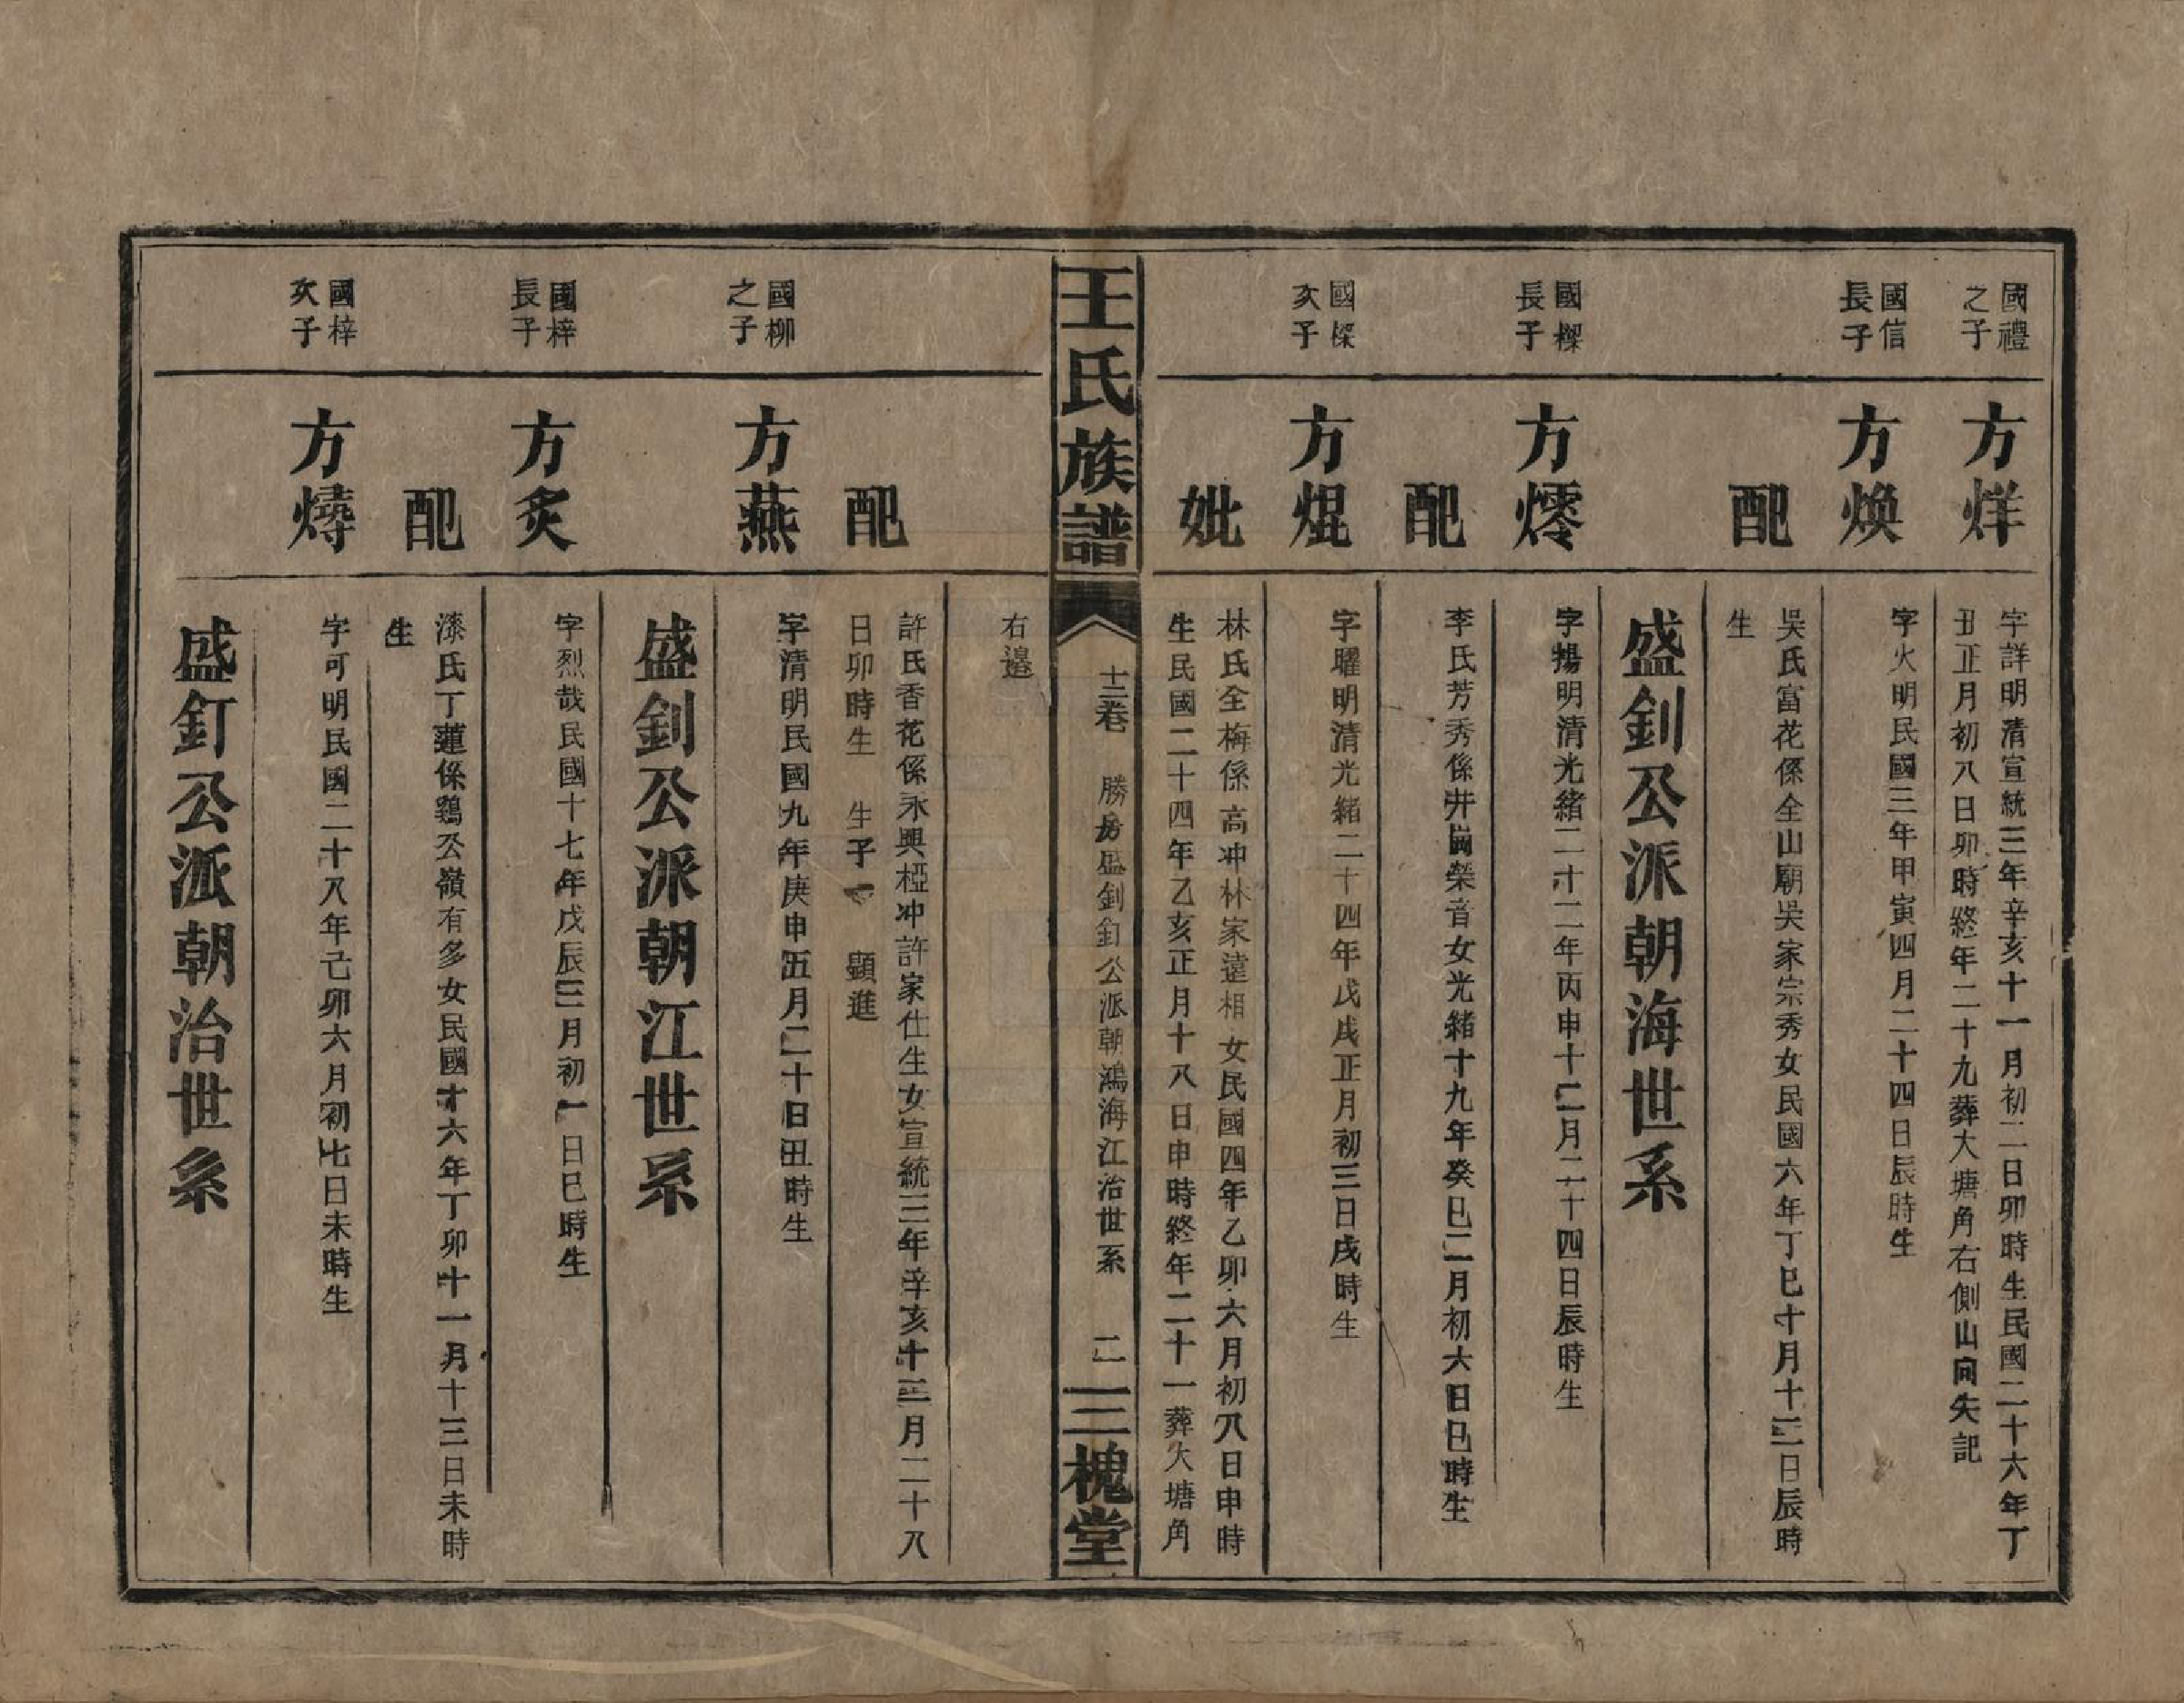 國禮
之子
方烊
字詳明清宣統三年辛亥十一月初二日卯時生民國二十六年丁
丑正月初八日卯時終年二十九葬大塘角右側山向失記
國信
長子
方煥
字火明民國三年甲寅四月二十四日辰時生
配
吳氏富花係全山廟吳家宗秀女民國六年丁巳十月十二日辰時
生
盛釗公派朝海世系
國樑
長子
方燯
字揚明清光緒二十二年丙申十二月二十四日辰時生
配
李氏芳秀係井崗榮音女光緒十九年癸巳二月初六日巳時生
國樑
次子
方焜
字曜明清光緒二十四年戊戌正月初三日戌時生
妣
林氏全梅係高冲林家遠相女民國四年乙卯六月初八日申時
生民國二十四年乙亥正月十八日申時終年二十一葬大塘角
王氏族譜
十二卷
勝房盛釗釘公派朝鴻海江治世系
二
三槐堂
右邊
配
許氏香花係永興椏冲許家仕生女宣統三年辛亥十二月二十八
日卯時生 生子一 顯進
國柳
之子
方燕
字清明民國九年庚申五月二十日丑時生
盛釗公派朝江世系
國梓
長子
方炙
字烈哉民國十七年戊辰三月初一日巳時生
配
漆氏丁蓮係鷄公嶺有多女民國十六年丁卯十一月十三日未時
生
國梓
次子
方燽
字可明民國二十八年己卯六月初七日未時生
盛釘公派朝治世系